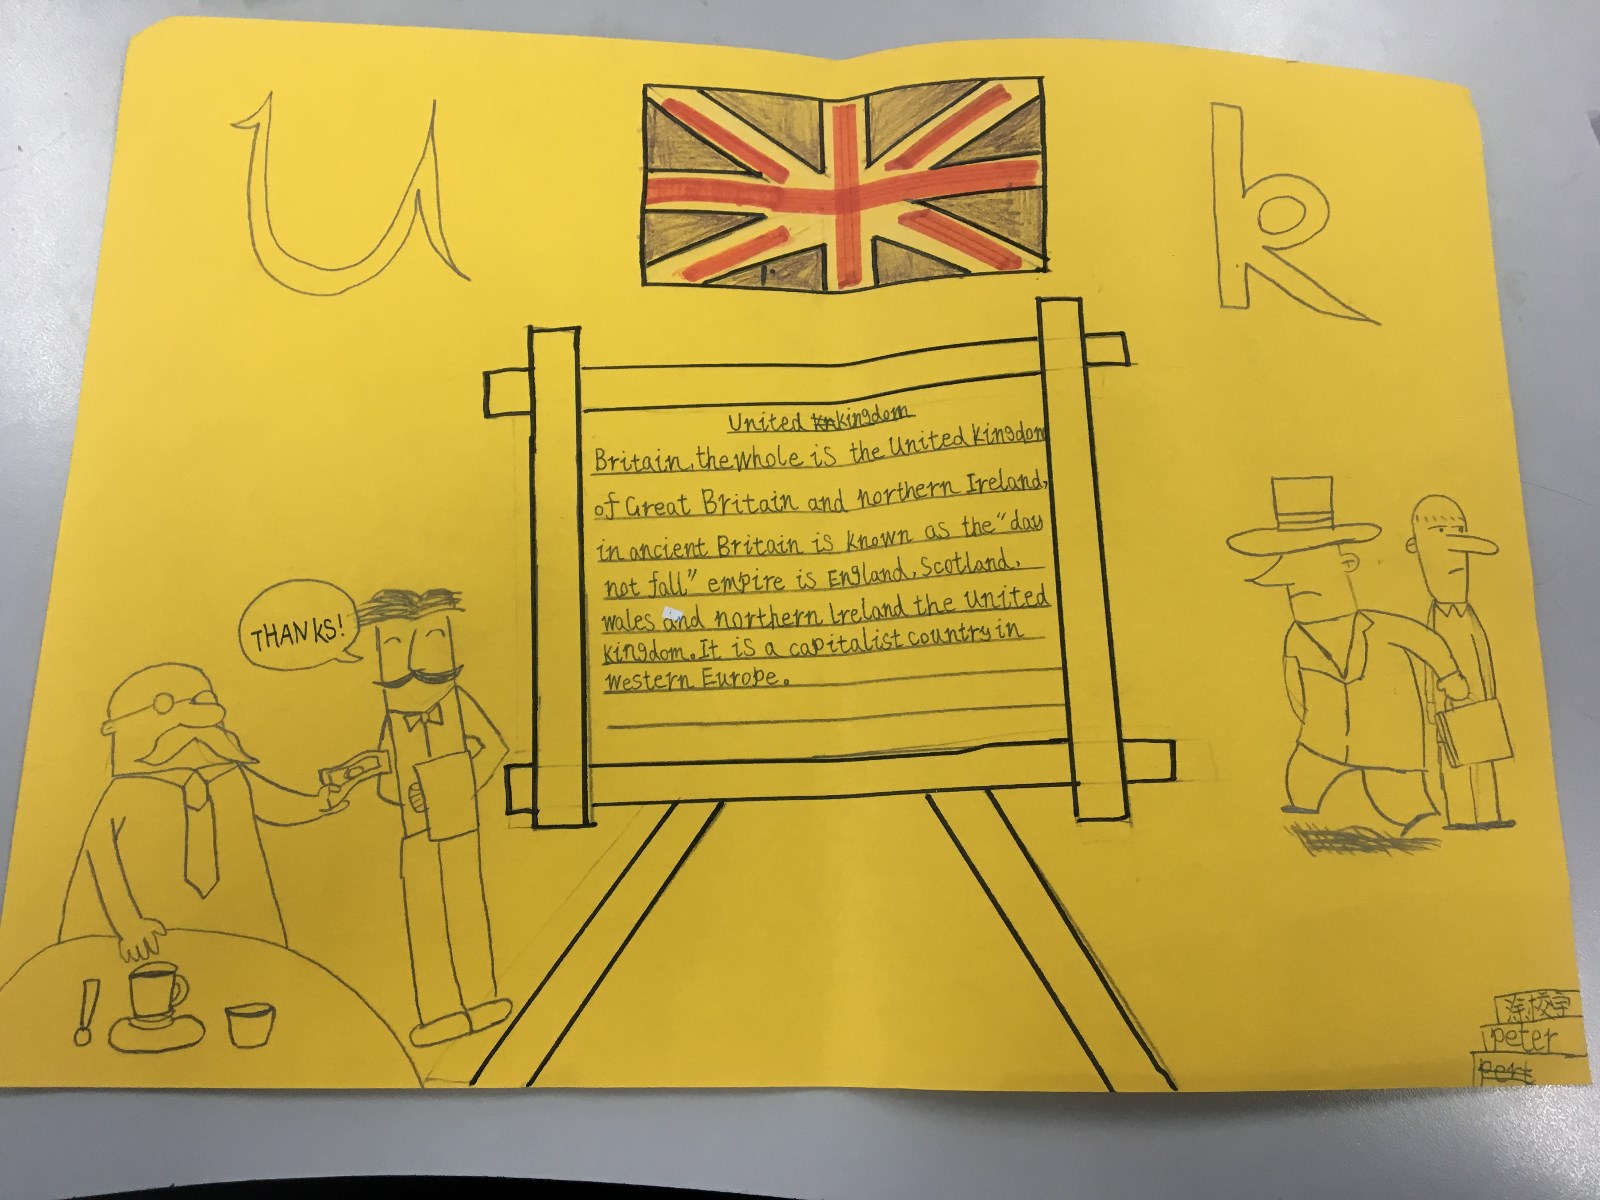 U k
United kingdom
Britain, the whole is the United kingdom
of Great Britain and northern Ireland,
in ancient Britain is known as the "day
not fall" empire is England, Scotland,
wales and northern Ireland the United
kingdom. It is a capitalist country in
western Europe.
THANKS!
peter